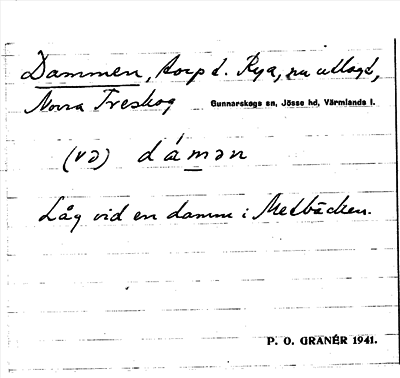 Dammen, torp t. Rya, nu utlagt,
Norra Treskog Gunnarskogs sn, Jösse hd, Värmlands l.
(və) dámən
Låg vid en damm i Metbäcken.
P. O. GRANÉR 1941.